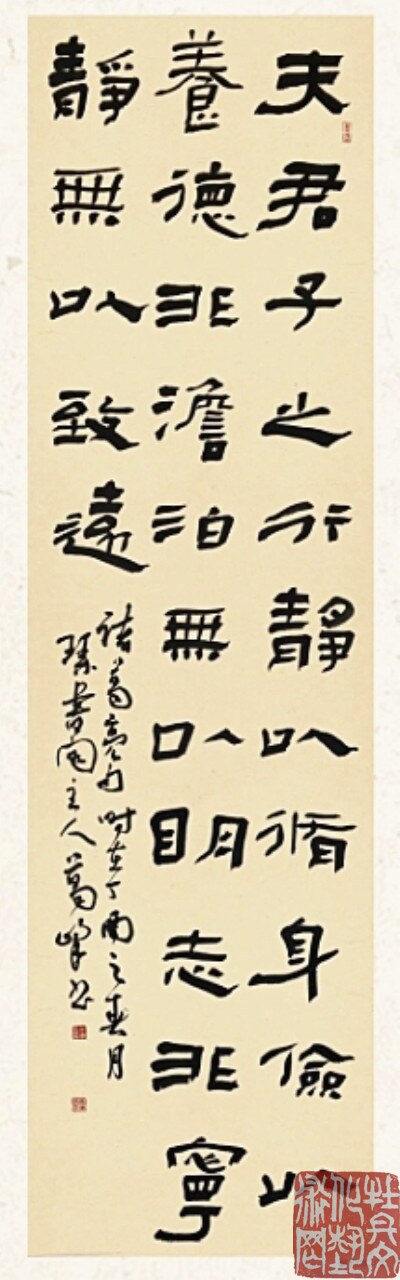 夫君子之行靜以脩身儉以
養德非澹泊無以明志非寧
靜無以致遠
諸葛亮句時在丁酉之春月
書閣主人葛峰書